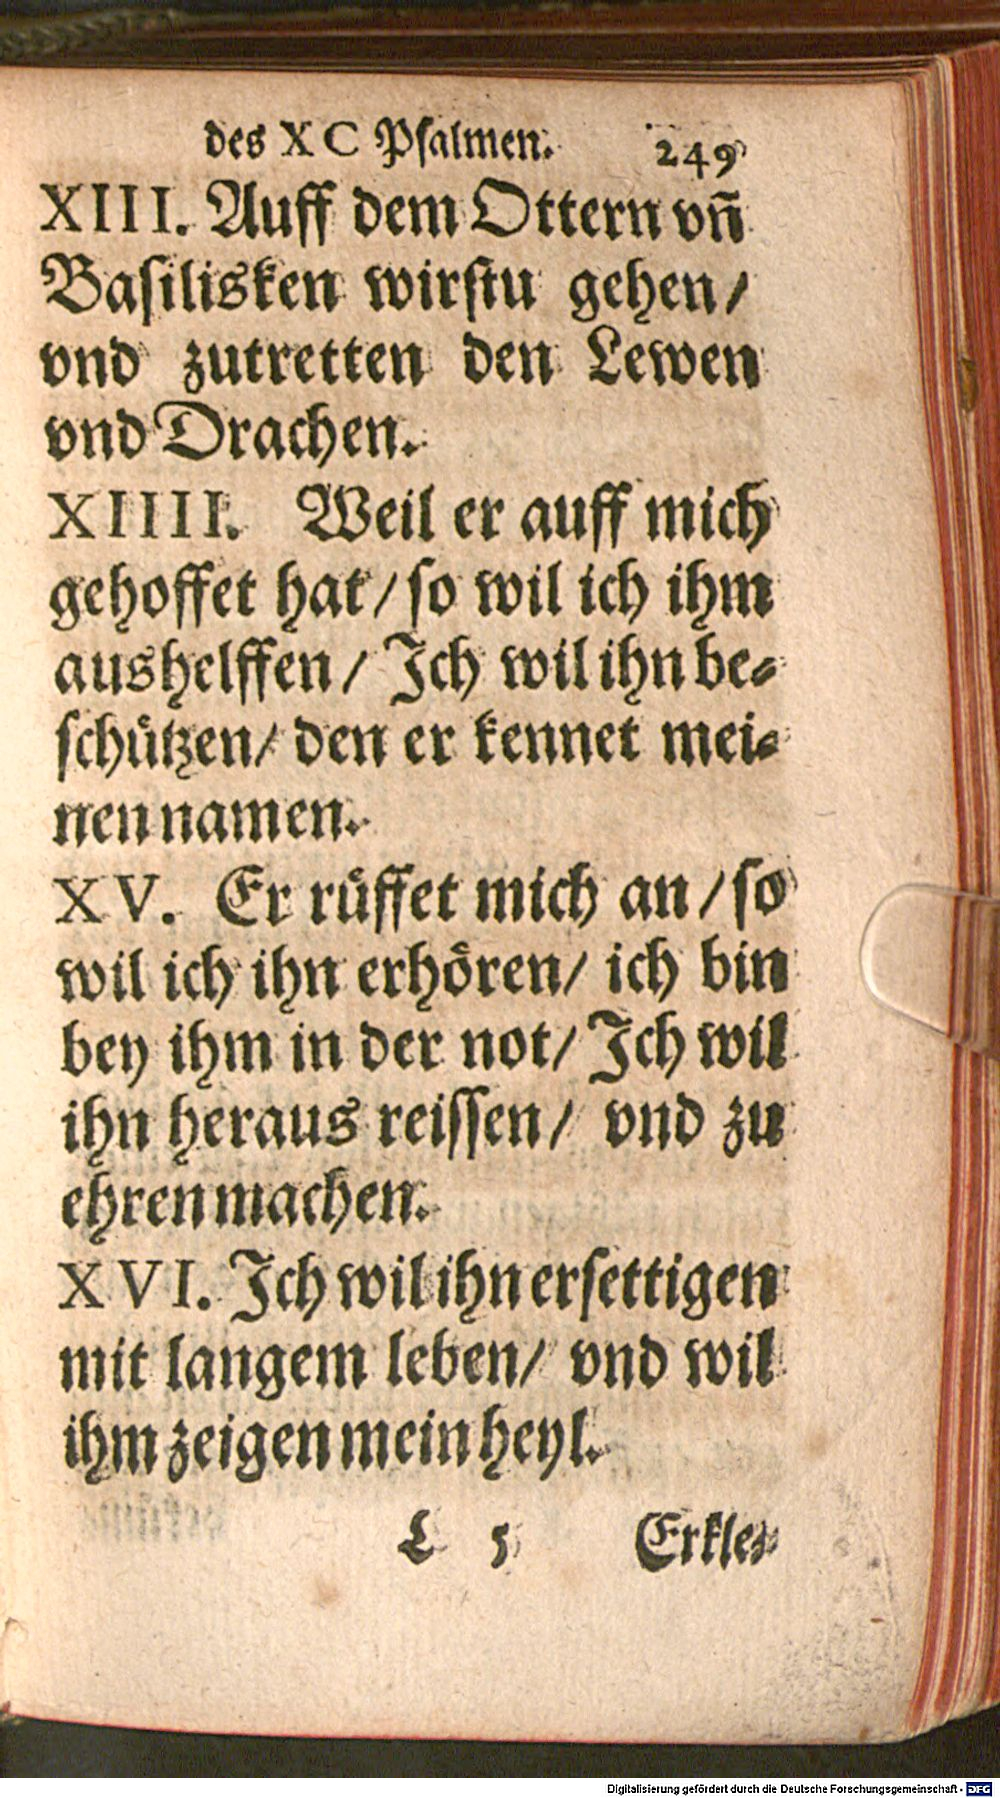 des XC Psalmen. 249
XIII. Auff dem Ottern vñ
Basilisken wirstu gehen/
vnd zutretten den Lewen
vnd Drachen.
XIIII. Weil er auff mich
gehoffet hat/ so wil ich ihm
aushelffen/ Ich wil ihn be-
schuͤtzen/ den er kennet mei-
nen namen.
XV. Er ruͤffet mich an/ so
wil ich ihn erhoͤren/ ich bin
bey ihm in der not/ Ich wil
ihn heraus reissen/ vnd zu
ehren machen.
XVI. Ich wil ihn ersettigen
mit langem leben/ vnd wil
ihm zeigen mein heyl.
L 5 Erkle-
Digitalisierung gefördert durch die Deutsche Forschungsgemeinschaft - DFG